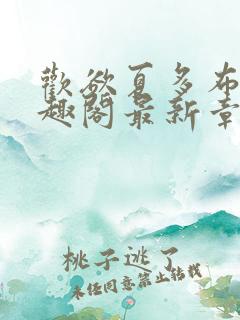 歡欲夏多布
趣閣最新章
桃子逃了
未任同意禁止转载